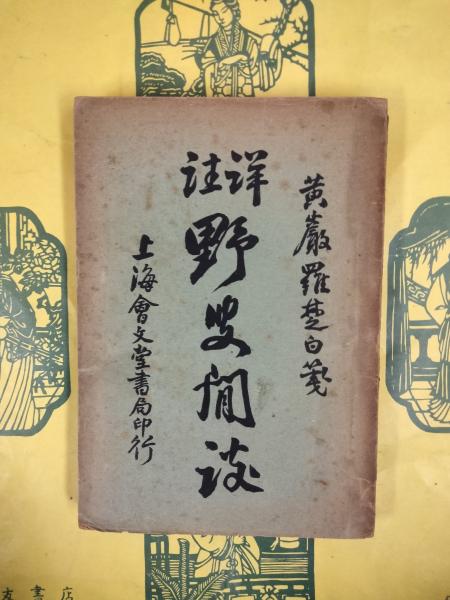 黄巖羅楚白箋
詳註
野叟閒談
上海會文堂書局印行
友書店